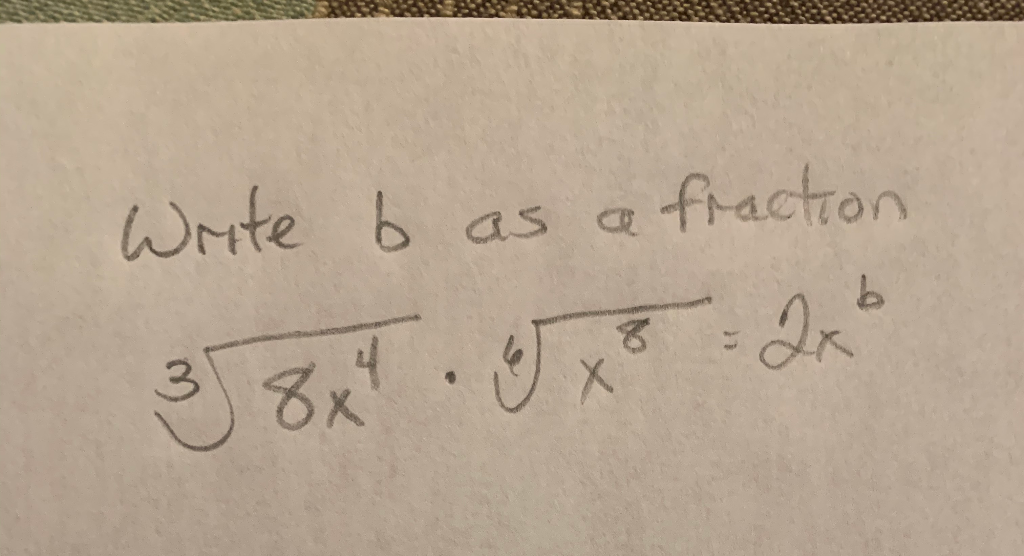 Write b as a fraction
∛(8x⁴) · ⁶√(x⁸) = 2xᵇ